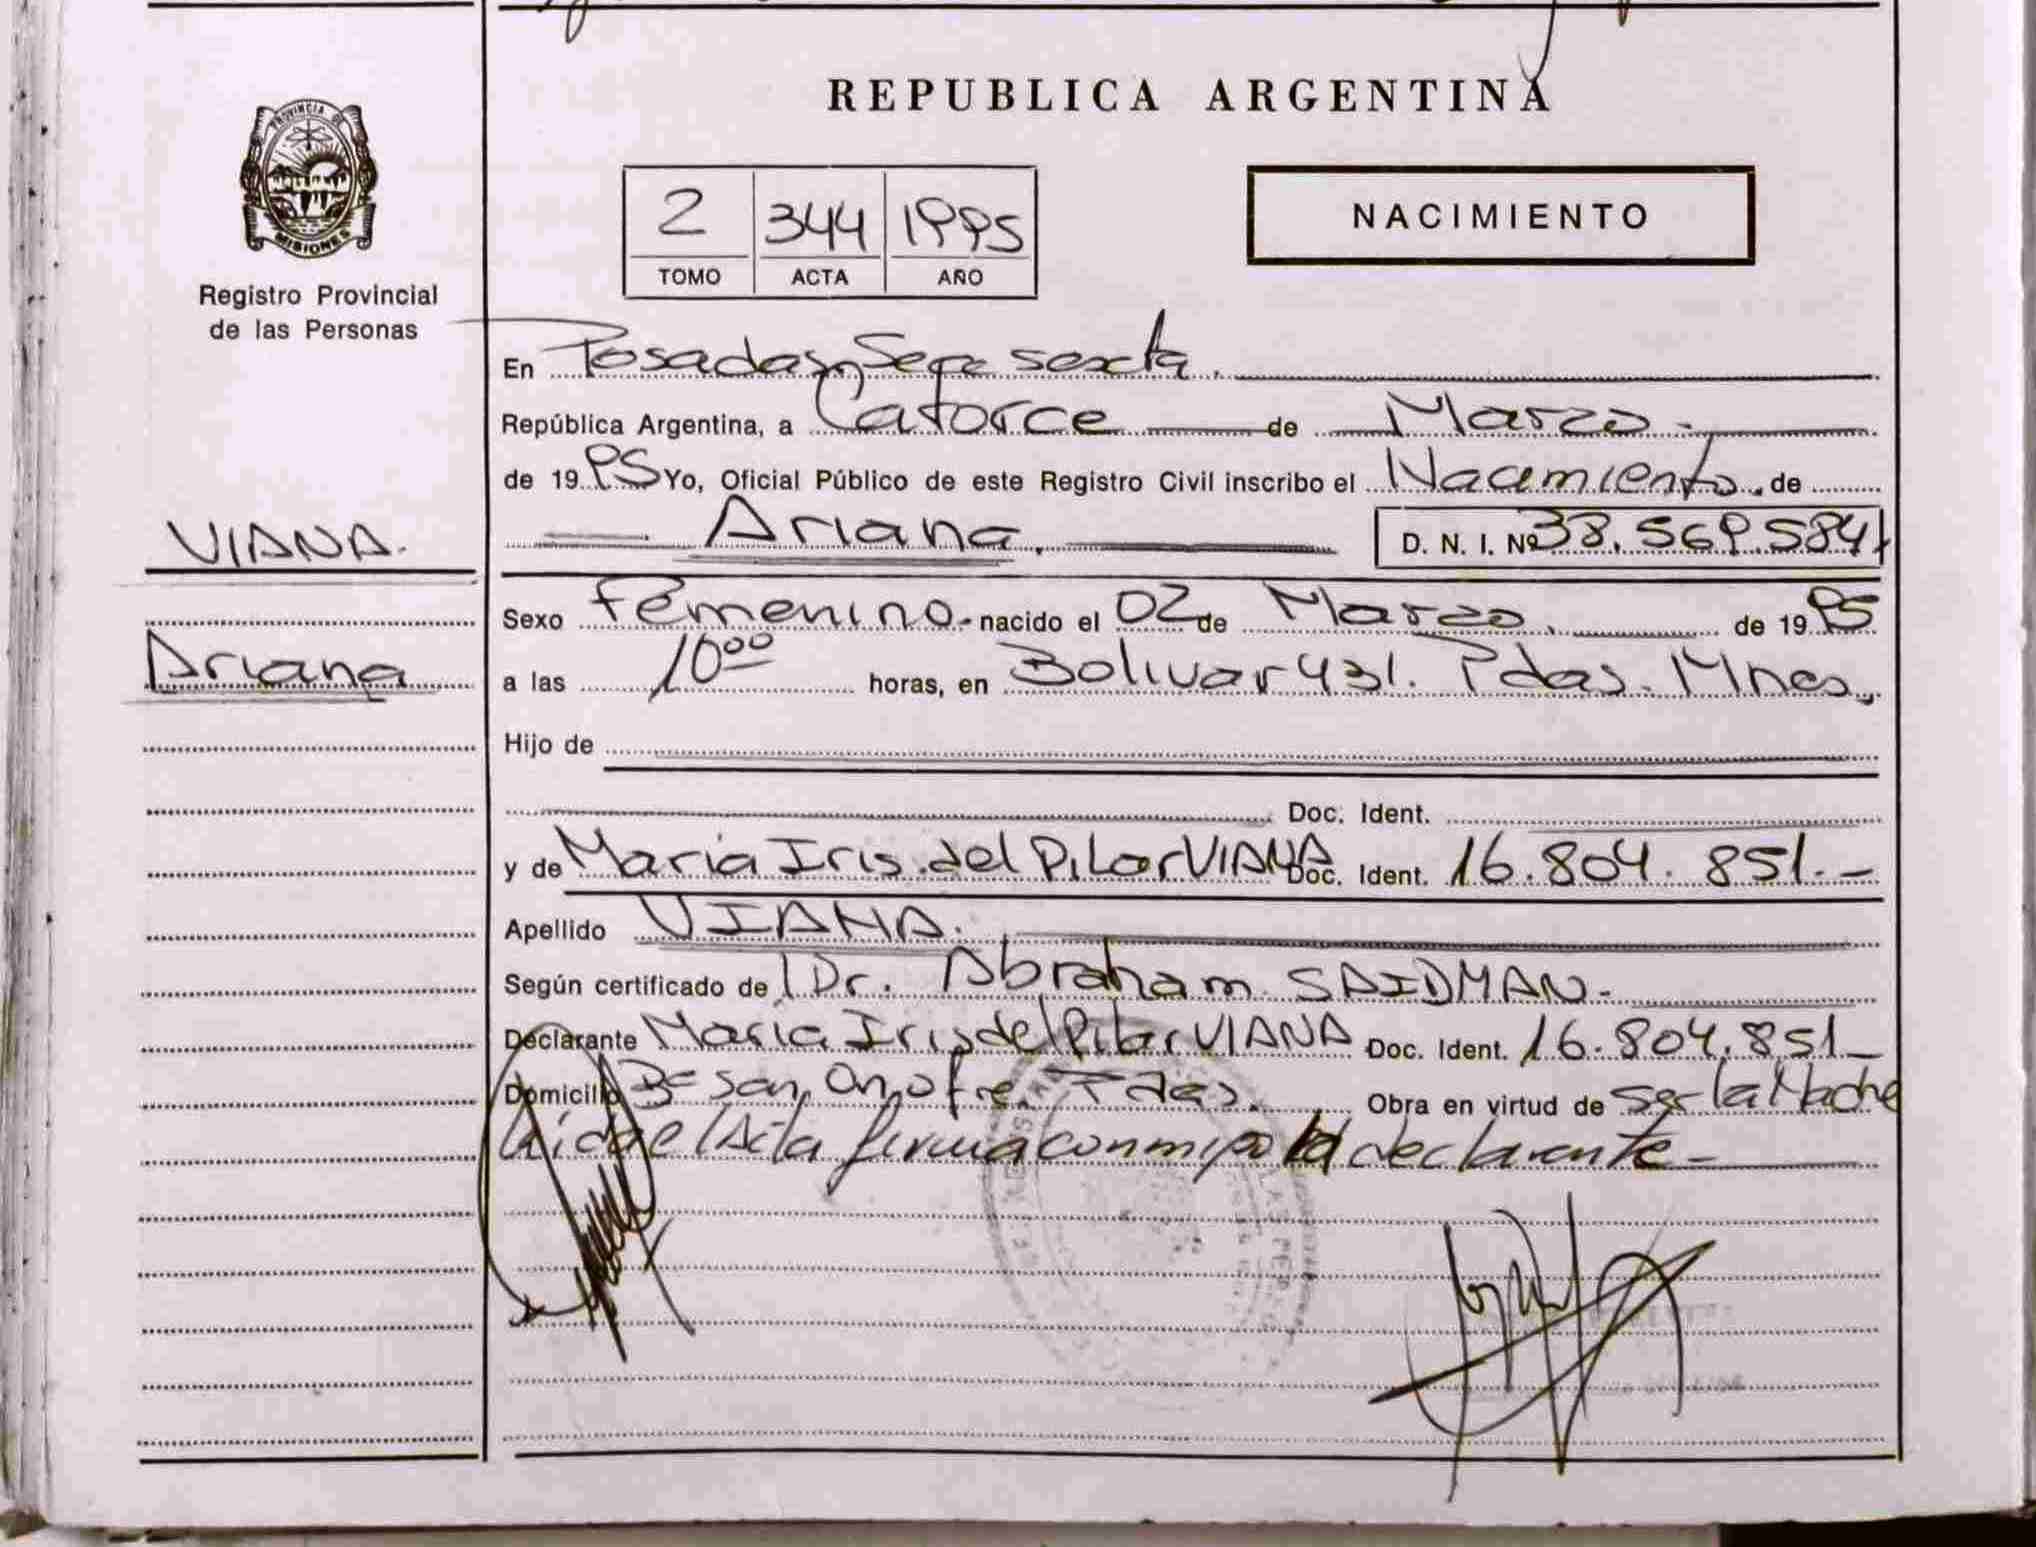 REPUBLICA ARGENTINA
PROVINCIA DE
MISIONES
Registro Provincial
de las Personas
2 344 1995
TOMO ACTA AÑO
NACIMIENTO
En Posadas, sexta.
República Argentina, a Catorce de Marzo.
de 1995 Yo, Oficial Público de este Registro Civil inscribo el Nacimiento. de
VIANA.
Ariana. D. N. I. Nº 38.569.584
Sexo Femenino. nacido el 02 de Marzo. de 1995
Ariana
a las 10⁰⁰ horas, en Bolivar 431. Pdas. Mnes.
Hijo de
Doc. Ident.
y de Maria Iris del Pilar VIANA Doc. Ident. 16.804.851.-
Apellido VIANA.
Según certificado de Dr. Abraham SAIDMAN.
Declarante Maria Iris del Pilar VIANA Doc. Ident. 16.804.851-
Domicilio Bº San Onofre. Pdas. Obra en virtud de ser la Madre
Leida el Acta firma conmigo la declarante-